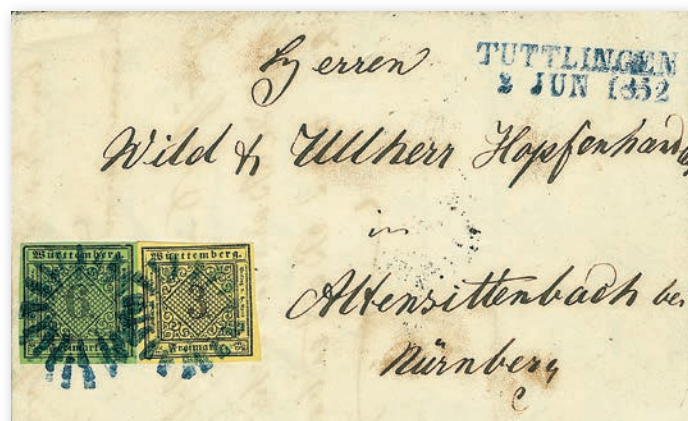 Herren
TUTTLINGEN
2 JUN 1852
Wild & Ullherr Hopfenhand
in
Altensittenbach bei
Nürnberg
Württemberg.
6
Freimarke
Württemberg.
3
Freimarke